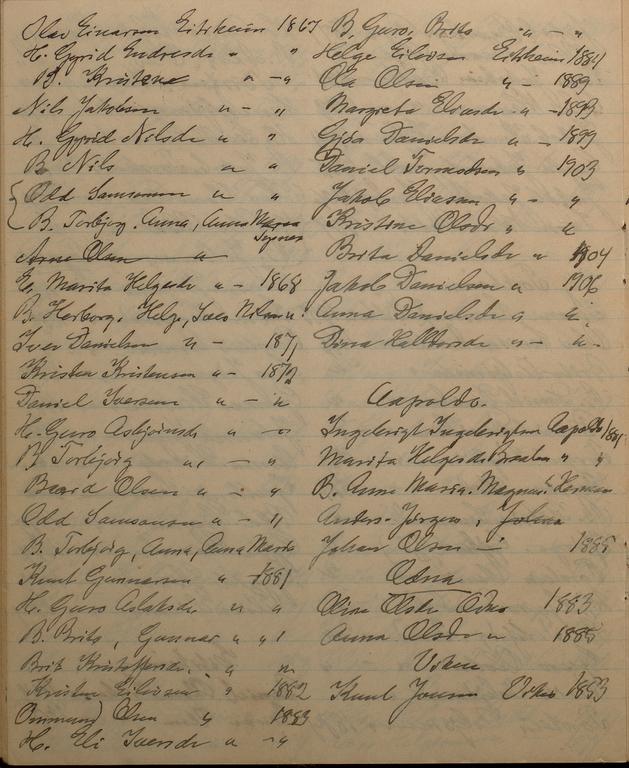 Olav Einarson Eitrheim 1867
H. Gyrid Endresdr " "
B. Kristene " - "
Nils Jakobson " - "
H. Gyrid Nilsdr " "
B. Nils " "
Odd Samsonson " - "
B. Torbjørg. Anna, Anna Maria
Arne Olsen "
H. Marita Helgesdr " - 1868
B. Herborg. Helge, Ives
Iver Danielson " - 1871
Kristen Kristenson " - 1872
Daniel Iverson " - "
H. Guro Asbjørnsdr " - "
B. Torbjørg " - "
Baard Olsen " - "
Odd Samsonson " - "
B. Torbjørg, Anna, Anna Maria
Knut Gunnarson " 1881
H. Guro Aslaksdr " "
B. Brita, Gunnar " "
Brita Kristoffersdr. " "
Kristen Eilivson " 1882
Ommund Olsen " 1883
H. Eli Iversdr " - "
B. Guro, Brita " - "
Helge Eilivson Eitrheim 1884
Ola Olsen " - 1889
Margreta Eliasdr " - 1893
Gjøa Danielsdr " - 1899
Daniel Tormodson " 1903
Jakob Eliason " - "
Kristine Olsdr " "
Brita Danielsdr " 1904
Jakob Danielson " 1906
Anna Danielsdr " "
Dina Halvorsdr " - " -
Aapoldo.
Ingebrigt Ingebrigtson Aapoldo 1881
Marita Helgesdr. Braaten " "
B. Anne Maria. Magnus. Herman
Anders. Jørgen, Johan
Johan Olsen - 1885
Odna
Oline Olsdr Odna 1883
Anna Olsdr " 1885
Viken
Knut Jonson Viken 1853